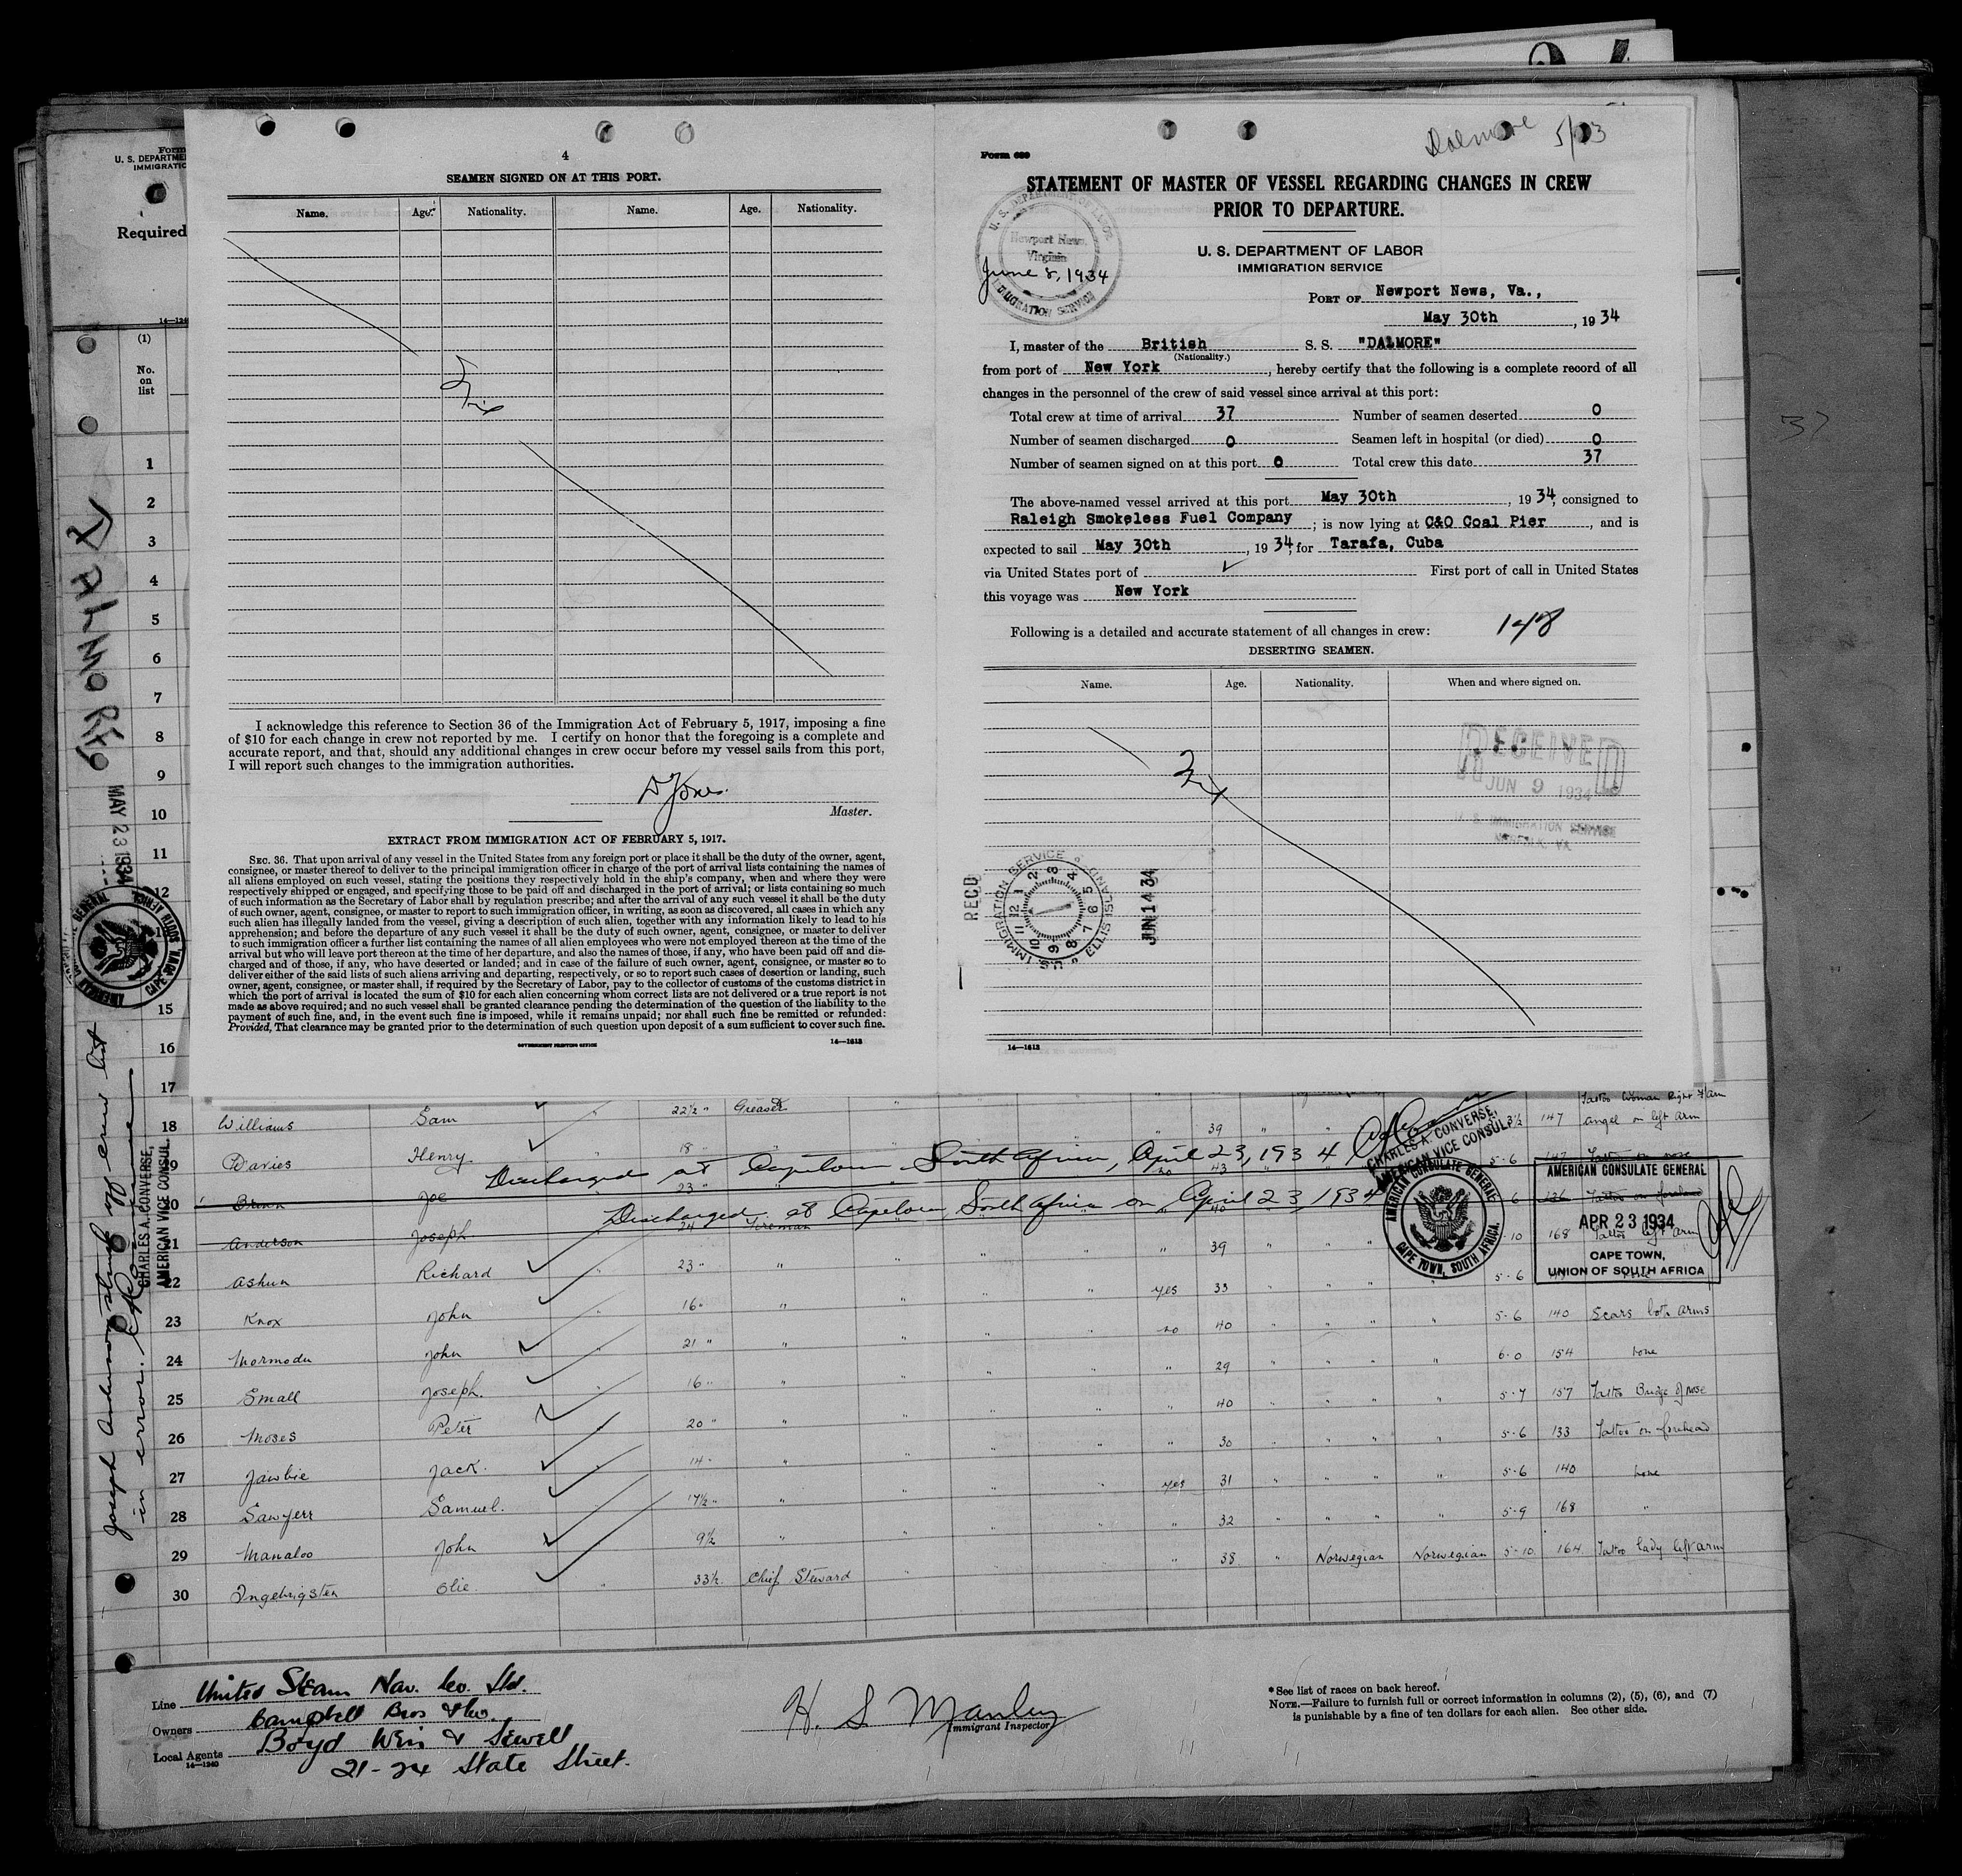 4
SEAMEN SIGNED ON AT THIS PORT.
Name. Age. Nationality. Name. Age. Nationality.
I acknowledge this reference to Section 36 of the Immigration Act of February 5, 1917, imposing a fine
of $10 for each change in crew not reported by me. I certify on honor that the foregoing is a complete and
accurate report, and that, should any additional changes in crew occur before my vessel sails from this port,
I will report such changes to the immigration authorities.
D Jones.
Master.
EXTRACT FROM IMMIGRATION ACT OF FEBRUARY 5, 1917.
SEC. 36. That upon arrival of any vessel in the United States from any foreign port or place it shall be the duty of the owner, agent,
consignee, or master thereof to deliver to the principal immigration officer in charge of the port of arrival lists containing the names of
all aliens employed on such vessel, stating the positions they respectively hold in the ship's company, when and where they were
respectively shipped or engaged, and specifying those to be paid off and discharged in the port of arrival; or lists containing so much
of such information as the Secretary of Labor shall by regulation prescribe; and after the arrival of any such vessel it shall be the duty
of such owner, agent, consignee, or master to report to such immigration officer, in writing, as soon as discovered, all cases in which any
such alien has illegally landed from the vessel, giving a description of such alien, together with any information likely to lead to his
apprehension; and before the departure of any such vessel it shall be the duty of such owner, agent, consignee, or master to deliver
to such immigration officer a further list containing the names of all alien employees who were not employed thereon at the time of the
arrival but who will leave port thereon at the time of her departure, and also the names of those, if any, who have been paid off and dis-
charged and of those, if any, who have deserted or landed; and in case of the failure of such owner, agent, consignee, or master so to
deliver either of the said lists of such aliens arriving and departing, respectively, or so to report such cases of desertion or landing, such
owner, agent, consignee, or master shall, if required by the Secretary of Labor, pay to the collector of customs of the customs district in
which the port of arrival is located the sum of $10 for each alien concerning whom correct lists are not delivered or a true report is not
made as above required; and no such vessel shall be granted clearance pending the determination of the question of the liability to the
payment of such fine, and, in the event such fine is imposed, while it remains unpaid; nor shall such fine be remitted or refunded:
Provided, That clearance may be granted prior to the determination of such question upon deposit of a sum sufficient to cover such fine.
GOVERNMENT PRINTING OFFICE
14—1613
Dalmore 5/23
Form 689
STATEMENT OF MASTER OF VESSEL REGARDING CHANGES IN CREW
PRIOR TO DEPARTURE.
U. S. DEPARTMENT OF LABOR
IMMIGRATION SERVICE
U. S. DEPARTMENT OF LABOR
Newport News, Virginia
June 8, 1934
IMMIGRATION SERVICE
PORT OF Newport News, Va.,
May 30th, 1934
I, master of the British S. S. "DALMORE"
(Nationality.)
from port of New York, hereby certify that the following is a complete record of all
changes in the personnel of the crew of said vessel since arrival at this port:
Total crew at time of arrival 37 Number of seamen deserted 0
Number of seamen discharged 0 Seamen left in hospital (or died) 0
Number of seamen signed on at this port 0 Total crew this date 37
The above-named vessel arrived at this port May 30th, 1934, consigned to
Raleigh Smokeless Fuel Company; is now lying at C&O Coal Pier, and is
expected to sail May 30th, 1934, for Tarafa, Cuba
via United States port of First port of call in United States
this voyage was New York
Following is a detailed and accurate statement of all changes in crew: 148
DESERTING SEAMEN.
Name. Age. Nationality. When and where signed on.
RECEIVED
JUN 9 1934
U. S. IMMIGRATION SERVICE
NORFOLK, VA.
RECD
U.S. IMMIGRATION SERVICE ELLIS ISLAND
JUN 14 34
14—1613
Form
U. S. DEPARTME
IMMIGRATIC
Required
14—1240
(1)
No.
on
list
1
2
3
4
5
6
7
8
9
10
11
12
15
16
17
MAY 23 1934
CHARLES A. CONVERSE,
AMERICAN VICE CONSUL.
Tattoo Woman Right F/arm
18 Williams Sam 22½ " Greaser 39 " 3½ 147 angel on left arm
19 Davies Henry 18 " 43 5-6 147 Tattoo on nose
Discharged at Capetown South Africa, April 23, 1934
20 Brown Joe 23 " 40 6 136 Tattoo on forehead
Discharged at Capetown, South Africa on April 23, 1934
21 Anderson Joseph 24 Fireman 39 10 168 Tattoo left arm
22 Ashun Richard 23 " " " " " 33 " " " " 5-6
23 Knox John 16 " " " " yes 40 " " " " 5-6 140 Scars both arms
24 Mormodu John 21 " " " " no 29 " " " " 6-0 154 none
25 Small Joseph. 16 " " " " " 40 " " " " 5-7 157 Tattoo Bridge of nose
26 Moses Peter 20 " " " " " 30 " " " " 5-6 133 Tattoo on forehead
27 Jawbie Jack. 14 " " " " yes 31 " " " " 5-6 140 none
28 Sawyerr Samuel. 17½ " " " " " 32 " " " " 5-9 168 "
29 Manaloo John 9½ " " " " 38 " Norwegian Norwegian 5-10 164 Tattoo lady left arm
30 Ingebrigsten Olie. 33½ Chief Steward
CHARLES A. CONVERSE,
AMERICAN VICE CONSUL
AMERICAN CONSULATE GENERAL
CAPE TOWN, SOUTH AFRICA.
AMERICAN CONSULATE GENERAL
APR 23 1934
CAPE TOWN,
UNION OF SOUTH AFRICA
Joseph Anderson struck off crew list
in error.
Line United Steam Nav. Co. Ltd.
Owners Campbell Bros & Co.
Local Agents Boyd Weir & Sewell
14—1240
21-24 State Street.
H. S Manley
Immigrant Inspector
* See list of races on back hereof.
NOTE.—Failure to furnish full or correct information in columns (2), (5), (6), and (7)
is punishable by a fine of ten dollars for each alien. See other side.
37